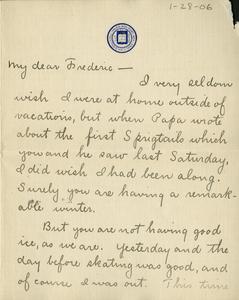 1-28-06
My dear Frederic —
I very seldom
wish I were at home outside of
vacations, but when Papa wrote
about the first Sprigtails which
you and he saw last Saturday,
I did wish I had been along.
Surely you are having a remark-
able winter.
But you are not having good
ice, as we are. Yesterday and the
day before skating was good, and
of course I was out. This time